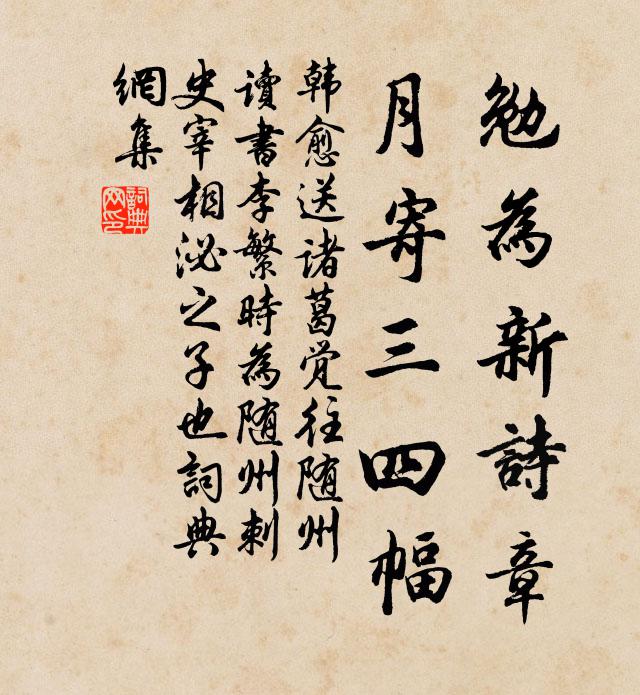 勉為新詩章
月寄三四幅
韩愈送诸葛觉往随州
讀書李繁時為随州刺
史宰相泌之子也詞典
網集
詞典
网印